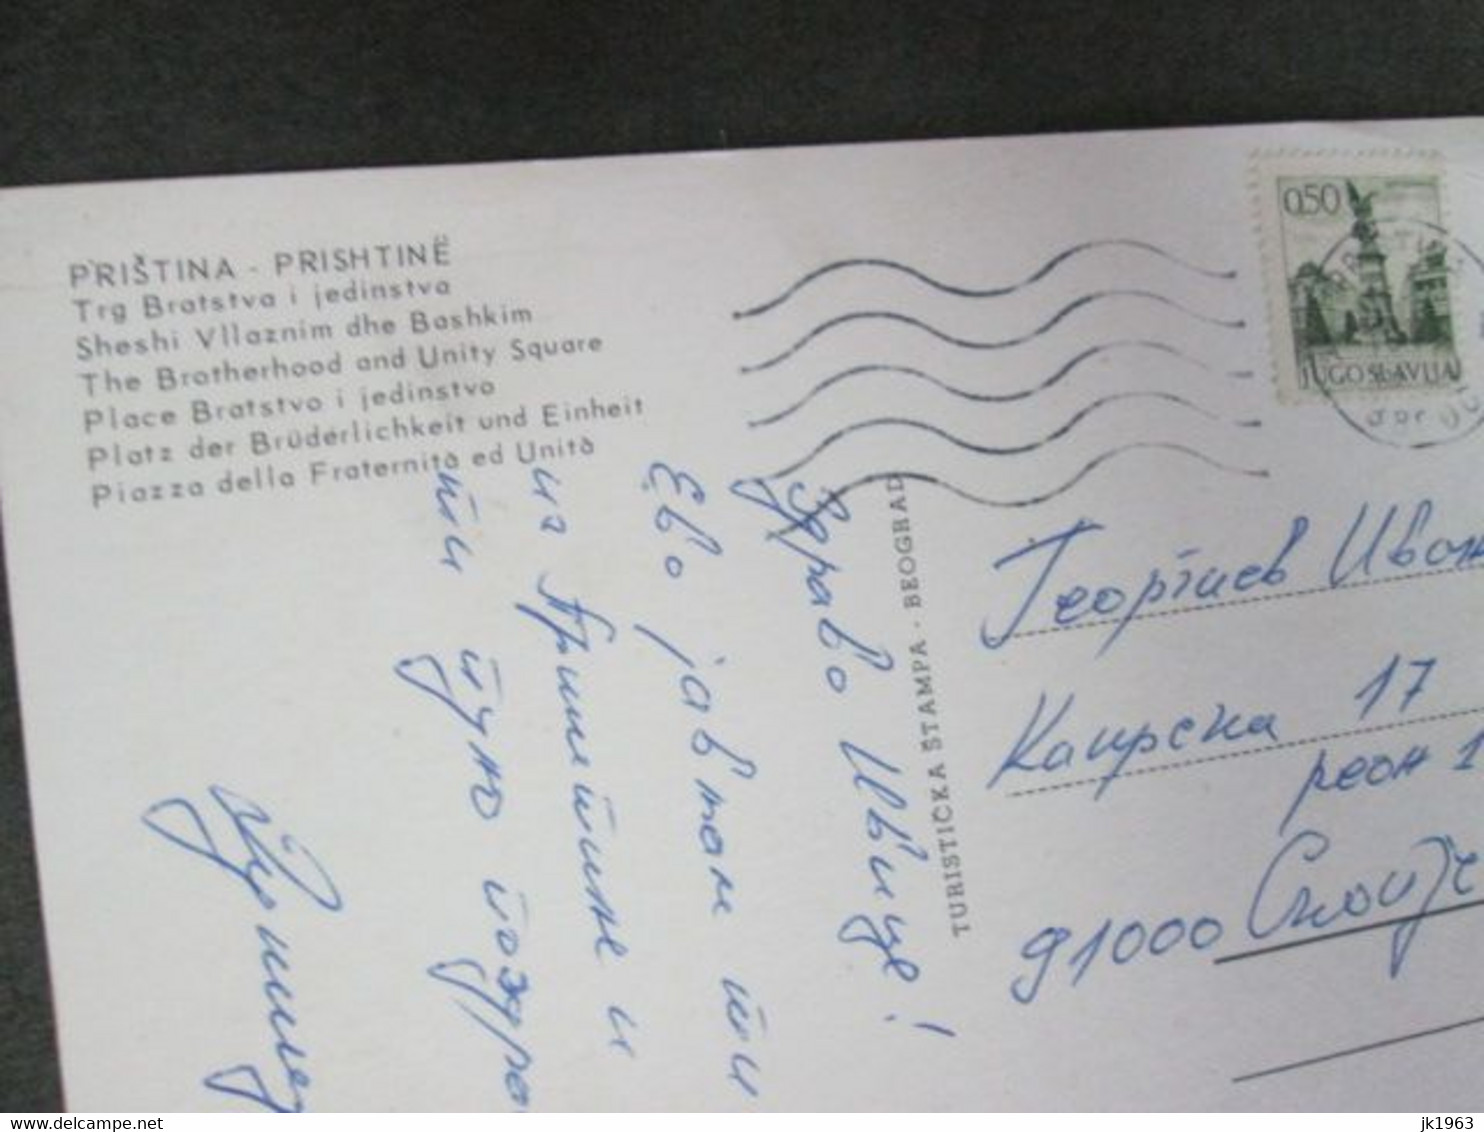 PRIŠTINA - PRISHTINË
Trg Bratstva i jedinstva
Sheshi Vllaznim dhe Bashkim
The Brotherhood and Unity Square
Place Bratstvo i jedinstvo
Platz der Brüderlichkeit und Einheit
Piazza della Fraternità ed Unità
0,50
JUGOSLAVIJA
TURISTIČKA ŠTAMPA - BEOGRAD
Здраво Ивице!
Ево јављам ти
из Приштине и
ти пуно поздра
Георгиев Иван
Кајрска 17
реон 1
91000 Скопје
jk1963